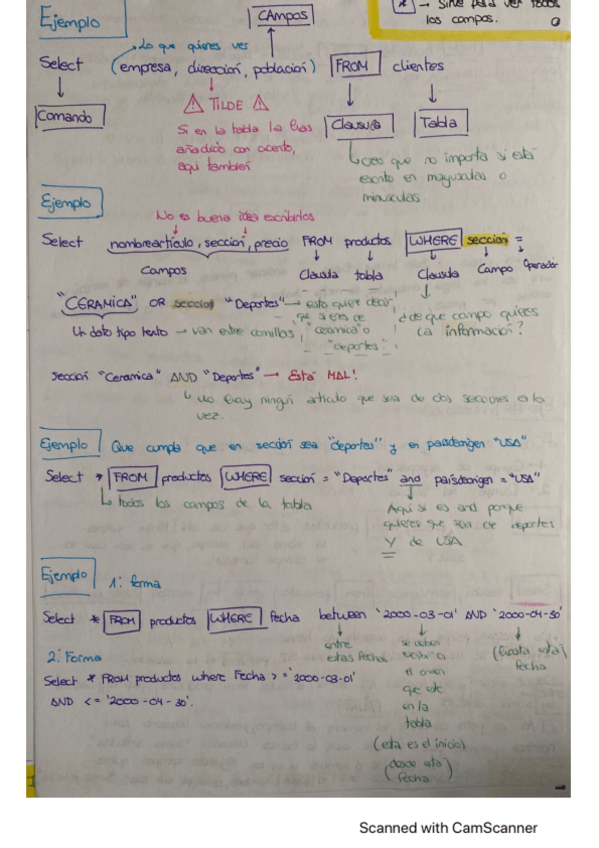 * → Sirve para ver todos
los campos.
Ejemplo
CAmpos
Lo que quieres ver
Select (empresa, dirección, población) FROM clientes
Comando
⚠ TILDE ⚠
Si en la tabla la has
añadido con acento,
aqui tambien
Clausula
Tabla
creo que no importa si está
escrito en mayusculas o
minusculas
Ejemplo
No es buena idea escribirlos
Select nombreartículo, seccion, precio FROM productos WHERE seccion =
Campos
Clausula tabla Clausula Campo Operador
"CERAMICA" OR seccion "Deportes" → esto quiere decir
que si eres de
"ceramica" o
"deportes"
¿de que campo quieres
la información?
Un dato tipo texto → van entre comillas
sección "Ceramica" AND "Deportes" → Está MAL!
No hay ningún articulo que sea de dos secciones a la
vez.
Ejemplo Que cumpla que en sección sea "deportes" y en paísdeorigen "USA"
Select * FROM productos WHERE sección = "Deportes" and paísdeorigen = "USA"
todos los campos de la tabla
Aqui si es and porque
quieres que sea de deportes
Y de USA
Ejemplo 1ª forma
Select * FROM productos WHERE fecha between '2000-03-01' AND '2000-04-30'
entre
estas fechas
se deben
escribir en
el orden
que este
en la
tabla
(esta es el inicio)
(desde esta
fecha)
(hasta esta)
fecha
2ª Forma
Select * FROM productos where Fecha > = '2000-03-01'
AND < = '2000-04-30'.
Scanned with CamScanner